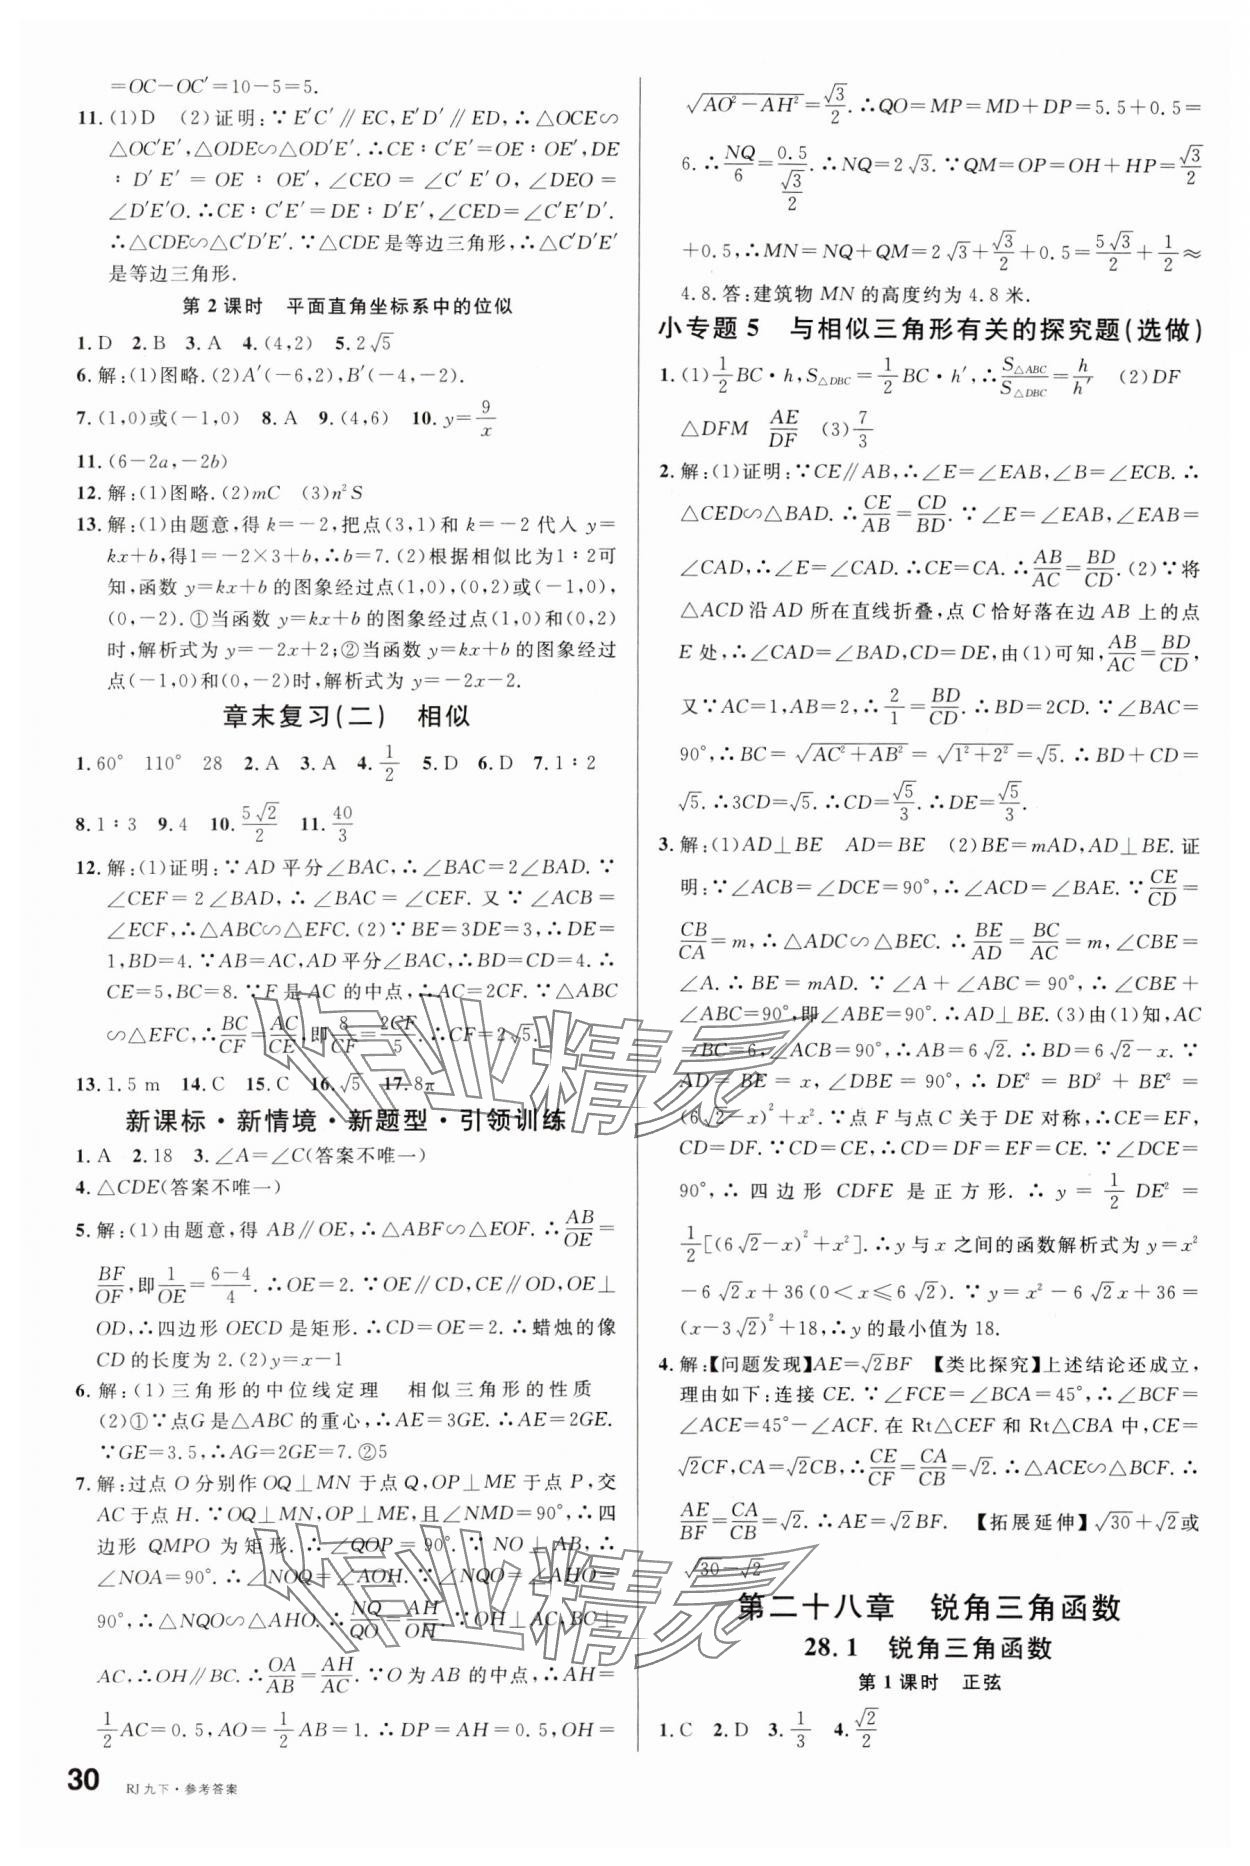 =OC-OC′=10-5=5.
11.(1)D (2)证明:∵E′C′∥EC,E′D′∥ED,∴△OCE∽
△OC′E′,△ODE∽△OD′E′.∴CE∶C′E′=OE∶OE′,DE
∶D′E′=OE∶OE′,∠CEO=∠C′E′O,∠DEO=
∠D′E′O.∴CE∶C′E′=DE∶D′E′,∠CED=∠C′E′D′.
∴△CDE∽△C′D′E′.∵△CDE是等边三角形,∴△C′D′E′
是等边三角形.
第2课时 平面直角坐标系中的位似
1.D 2.B 3.A 4.(4,2) 5.2√5
6.解:(1)图略.(2)A′(-6,2),B′(-4,-2).
7.(1,0)或(-1,0) 8.A 9.(4,6) 10.y=9/x
11.(6-2a,-2b)
12.解:(1)图略.(2)mC (3)n²S
13.解:(1)由题意,得k=-2,把点(3,1)和k=-2代入y=
kx+b,得1=-2×3+b,∴b=7.(2)根据相似比为1∶2可
知,函数y=kx+b的图象经过点(1,0),(0,2)或(-1,0),
(0,-2).①当函数y=kx+b的图象经过点(1,0)和(0,2)
时,解析式为y=-2x+2;②当函数y=kx+b的图象经过
点(-1,0)和(0,-2)时,解析式为y=-2x-2.
章末复习(二) 相似
1.60° 110° 28 2.A 3.A 4.1/2 5.D 6.D 7.1∶2
8.1∶3 9.4 10.5√2/2 11.40/3
12.解:(1)证明:∵AD平分∠BAC,∴∠BAC=2∠BAD.∵
∠CEF=2∠BAD,∴∠BAC=∠CEF.又∵∠ACB=
∠ECF,∴△ABC∽△EFC.(2)∵BE=3DE=3,∴DE=
1,BD=4.∵AB=AC,AD平分∠BAC,∴BD=CD=4.∴
CE=5,BC=8.∵F是AC的中点,∴AC=2CF.∵△ABC
∽△EFC,∴BC/CF=AC/CE,即8/CF=2CF/5.∴CF=2√5.
13.1.5 m 14.C 15.C 16.√5 17.8π
新课标·新情境·新题型·引领训练
1.A 2.18 3.∠A=∠C(答案不唯一)
4.△CDE(答案不唯一)
5.解:(1)由题意,得AB∥OE,∴△ABF∽△EOF.∴AB/OE=
BF/OF,即1/OE=(6-4)/4.∴OE=2.∵OE∥CD,CE∥OD,OE⊥
OD,∴四边形OECD是矩形.∴CD=OE=2.∴蜡烛的像
CD的长度为2.(2)y=x-1
6.解:(1)三角形的中位线定理 相似三角形的性质
(2)①∵点G是△ABC的重心,∴AE=3GE.∴AE=2GE.
∵GE=3.5,∴AG=2GE=7.②5
7.解:过点O分别作OQ⊥MN于点Q,OP⊥ME于点P,交
AC于点H.∵OQ⊥MN,OP⊥ME,且∠NMD=90°,∴四
边形QMPO为矩形.∴∠QOP=90°.∵NO⊥AB,∴
∠NOA=90°.∴∠NOQ=∠AOH.∵∠NQO=∠AHO=
90°,∴△NQO∽△AHO.∴NQ/QO=AH/OH.∵OH⊥AC,BC⊥
AC,∴OH∥BC.∴OA/AB=AH/AC.∵O为AB的中点,∴AH=
1/2AC=0.5,AO=1/2AB=1.∴DP=AH=0.5,OH=
√(AO²-AH²)=√3/2.∴QO=MP=MD+DP=5.5+0.5=
6.∴NQ/6=0.5/(√3/2).∴NQ=2√3.∵QM=OP=OH+HP=√3/2
+0.5,∴MN=NQ+QM=2√3+√3/2+0.5=5√3/2+1/2≈
4.8.答:建筑物MN的高度约为4.8米.
小专题5 与相似三角形有关的探究题(选做)
1.(1)1/2BC·h,S△DBC=1/2BC·h′,∴S△ABC/S△DBC=h/h′ (2)DF
△DFM AE/DF (3)7/3
2.解:(1)证明:∵CE∥AB,∴∠E=∠EAB,∠B=∠ECB.∴
△CED∽△BAD.∴CE/AB=CD/BD.∵∠E=∠EAB,∠EAB=
∠CAD,∴∠E=∠CAD.∴CE=CA.∴AB/AC=BD/CD.(2)∵将
△ACD沿AD所在直线折叠,点C恰好落在边AB上的点
E处,∴∠CAD=∠BAD,CD=DE,由(1)可知,AB/AC=BD/CD,
又∵AC=1,AB=2,∴2/1=BD/CD.∴BD=2CD.∵∠BAC=
90°,∴BC=√(AC²+AB²)=√(1²+2²)=√5.∴BD+CD=
√5.∴3CD=√5.∴CD=√5/3.∴DE=√5/3.
3.解:(1)AD⊥BE AD=BE (2)BE=mAD,AD⊥BE.证
明:∵∠ACB=∠DCE=90°,∴∠ACD=∠BAE.∵CE/CD=
CB/CA=m,∴△ADC∽△BEC.∴BE/AD=BC/AC=m,∠CBE=
∠A.∴BE=mAD.∵∠A+∠ABC=90°,∴∠CBE+
∠ABC=90°,即∠ABE=90°.∴AD⊥BE.(3)由(1)知,AC
=BC=6,∠ACB=90°,∴AB=6√2.∴BD=6√2-x.∵
AD=BE=x,∠DBE=90°,∴DE²=BD²+BE²=
(6√2-x)²+x².∵点F与点C关于DE对称,∴CE=EF,
CD=DF.∵CD=CE,∴CD=DF=EF=CE.∵∠DCE=
90°,∴四边形CDFE是正方形.∴y=1/2DE²=
1/2[(6√2-x)²+x²].∴y与x之间的函数解析式为y=x²
-6√2x+36(0<x≤6√2).∵y=x²-6√2x+36=
(x-3√2)²+18,∴y的最小值为18.
4.解:【问题发现】AE=√2BF 【类比探究】上述结论还成立,
理由如下:连接CE.∵∠FCE=∠BCA=45°,∴∠BCF=
∠ACE=45°-∠ACF.在Rt△CEF和Rt△CBA中,CE=
√2CF,CA=√2CB,∴CE/CF=CA/CB=√2.∴△ACE∽△BCF.∴
AE/BF=CA/CB=√2.∴AE=√2BF. 【拓展延伸】√30+√2或
√30-√2
第二十八章 锐角三角函数
28.1 锐角三角函数
第1课时 正弦
1.C 2.D 3.1/3 4.√2/2
30 RJ九下·参考答案
作业精灵
作业精灵